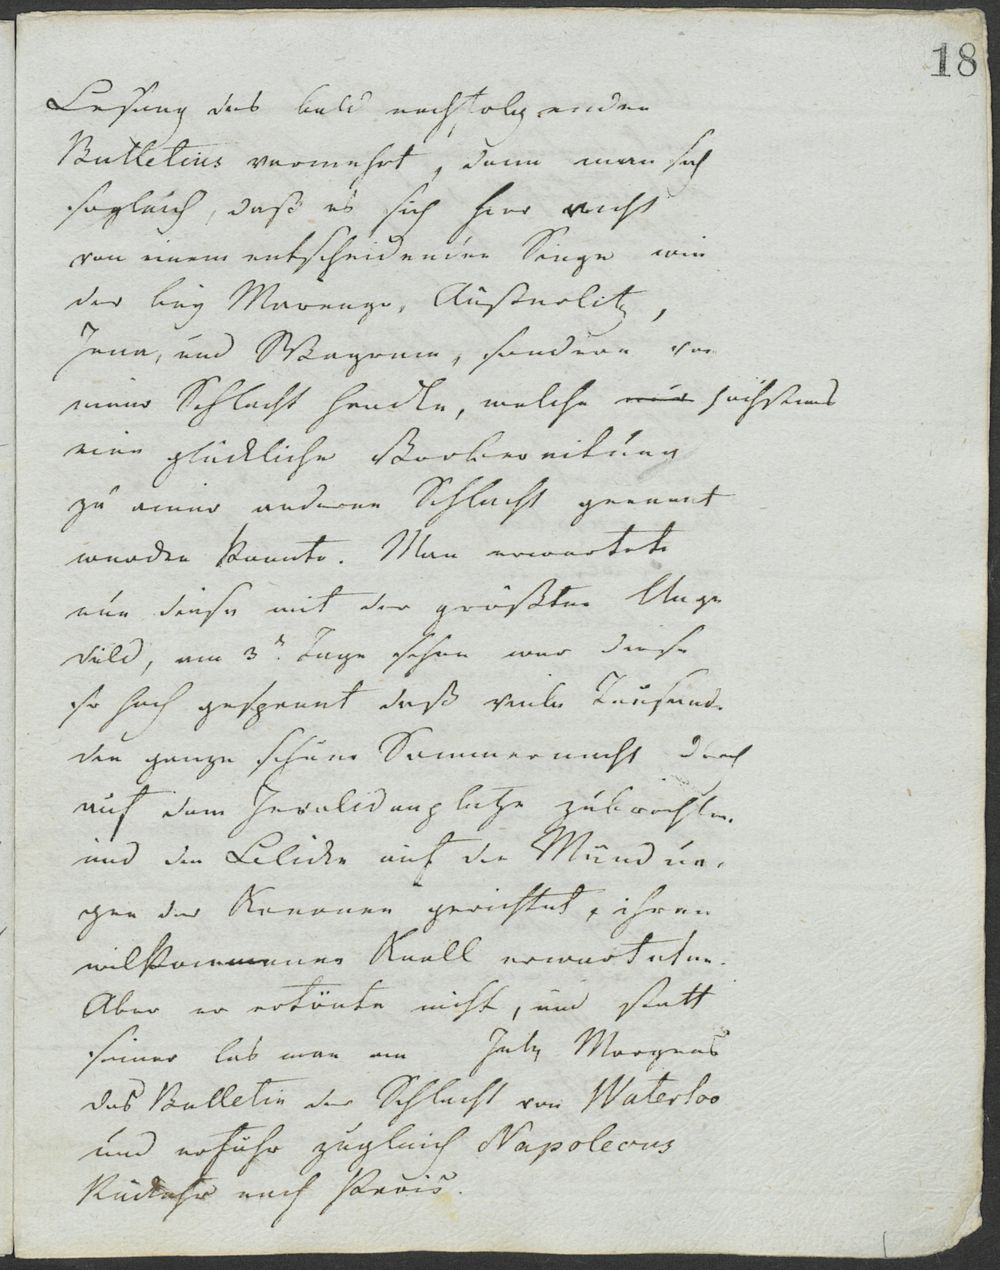 18
Lesung des bald nachfolgenden
Bulletins vermehrt, denn man sah
sogleich, daß es sich hier nicht
von einem entscheidenden Siege wie
der bey Marengo, Austerlitz,
Jena, und Wagram, sondern von
einer Schlacht handle, welche nur höchstens
eine glückliche Vorbereitung
zu einer anderen Schlacht genannt
werden konnte. Man erwartete
nun diese mit der größten Unge
duld, am 3n. Tage schon war diese
so hoch gespannt daß viele Tausende
die ganze schöne Sommernacht durch
auf dem Invalidenplatze zubrachten
und die Blicke auf die Mündun,
gen der Kanonen gerichtet, ihren
willkommenen Knall erwarteten.
Aber er ertönte nicht, und statt
seiner las man am July Morgens
das Bulletin der Schlacht von Waterloo
und erfuhr zugleich Napoleons
Rückkehr nach Paris.